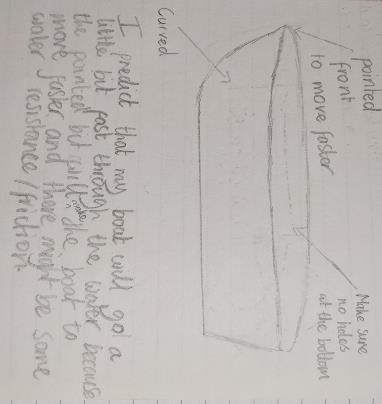 pointed
front
to move faster
Make sure
no holes
at the bottom
Curved
I predict that my boat will go a
little bit fast through the water because
the pointed bit will make the boat to
move faster and there might be some
water resistance/friction.